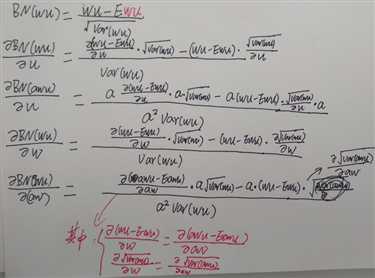 BN(wu) = wu - Ewu / √Var(wu)
∂BN(wu) / ∂u = ∂(wu - Ewu) / ∂u · √Var(wu) - (wu - Ewu) · √Var(wu) / ∂u / Var(wu)
∂BN(awu) / ∂u = a ∂(wu - Ewu) / ∂u · a √Var(wu) - a(wu - Ewu) · √Var(wu) / ∂u · a / a² Var(wu)
∂BN(wu) / ∂w = ∂(wu - Ewu) / ∂w · √Var(wu) - (wu - Ewu) · ∂√Var(wu) / ∂w / Var(wu)
∂√Var(awu) / ∂aw
∂BN( ) / ∂(aw) = ∂(awu - Eawu) / ∂aw · a √Var(wu) - a · (wu - Ewu) · / a² Var(wu)
其中 { ∂(wu - Ewu) / ∂w = ∂(awu - Eawu) / ∂aw
∂√Var(wu) / ∂w = ∂√Var(awu) / ∂aw